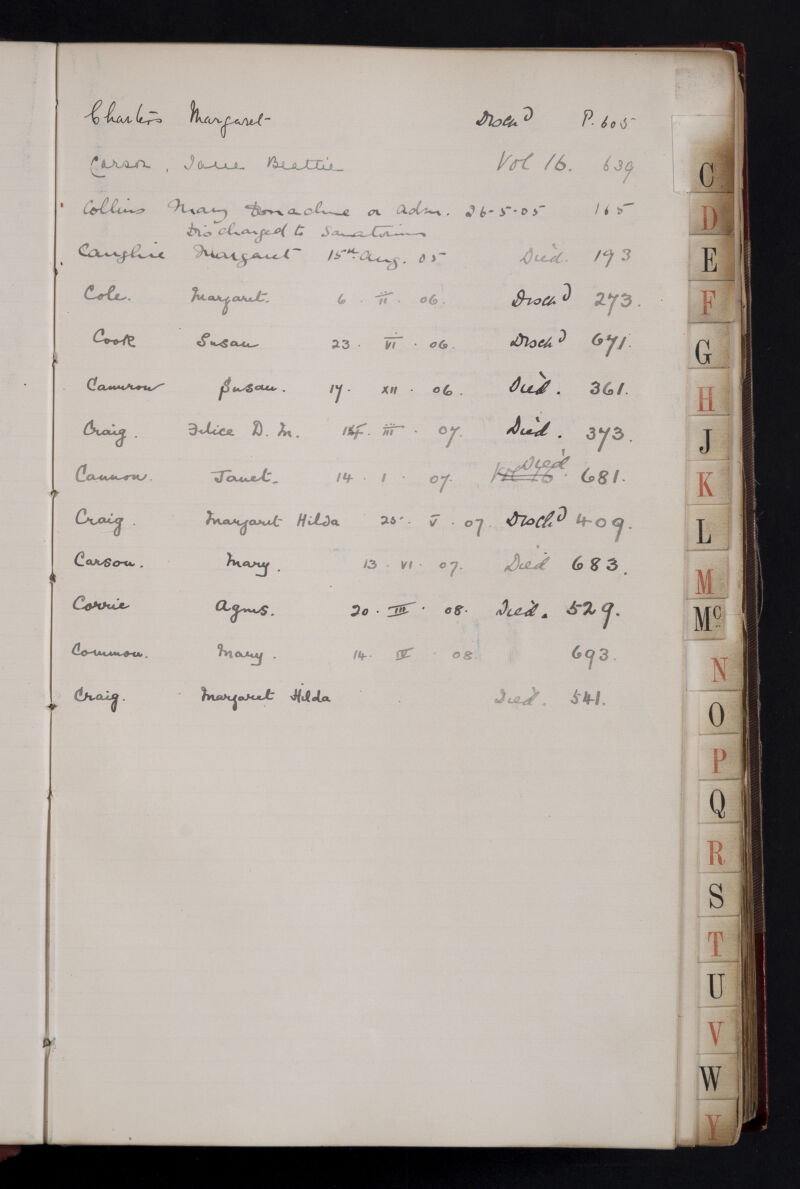 Charters Margaret Disch^d P. 605
Carson, Jane Beattie Vol 16. 639
Collins Mary or adm. 26-5-05 165
Discharged to Sanatorium
Caughie Margaret 15th Aug. 05 Died. 193
Cole. Margaret. 6. II. 06. Disch^d 273.
Cook Susan 23. VI. 06. Disch^d 671.
Cameron Susan. 17. XII. 06. Died. 361.
Craig. D. M. III. 07. Died. 373.
Cannon. Janet. 14. 1. 07. Died. 681.
Craig. Margaret Hilda 25. V. 07. Disch^d 409.
Carson. Mary. 13. VI. 07. Died 683.
Corrie Agnes. 20. III. 08. Died. 529.
Common. Mary. 14. IV. 08. 693.
Craig. Margaret Hilda Died. 541.
C
D
E
F
G
H
J
K
L
M
Mc
N
O
P
Q
R
S
T
U
V
W
Y